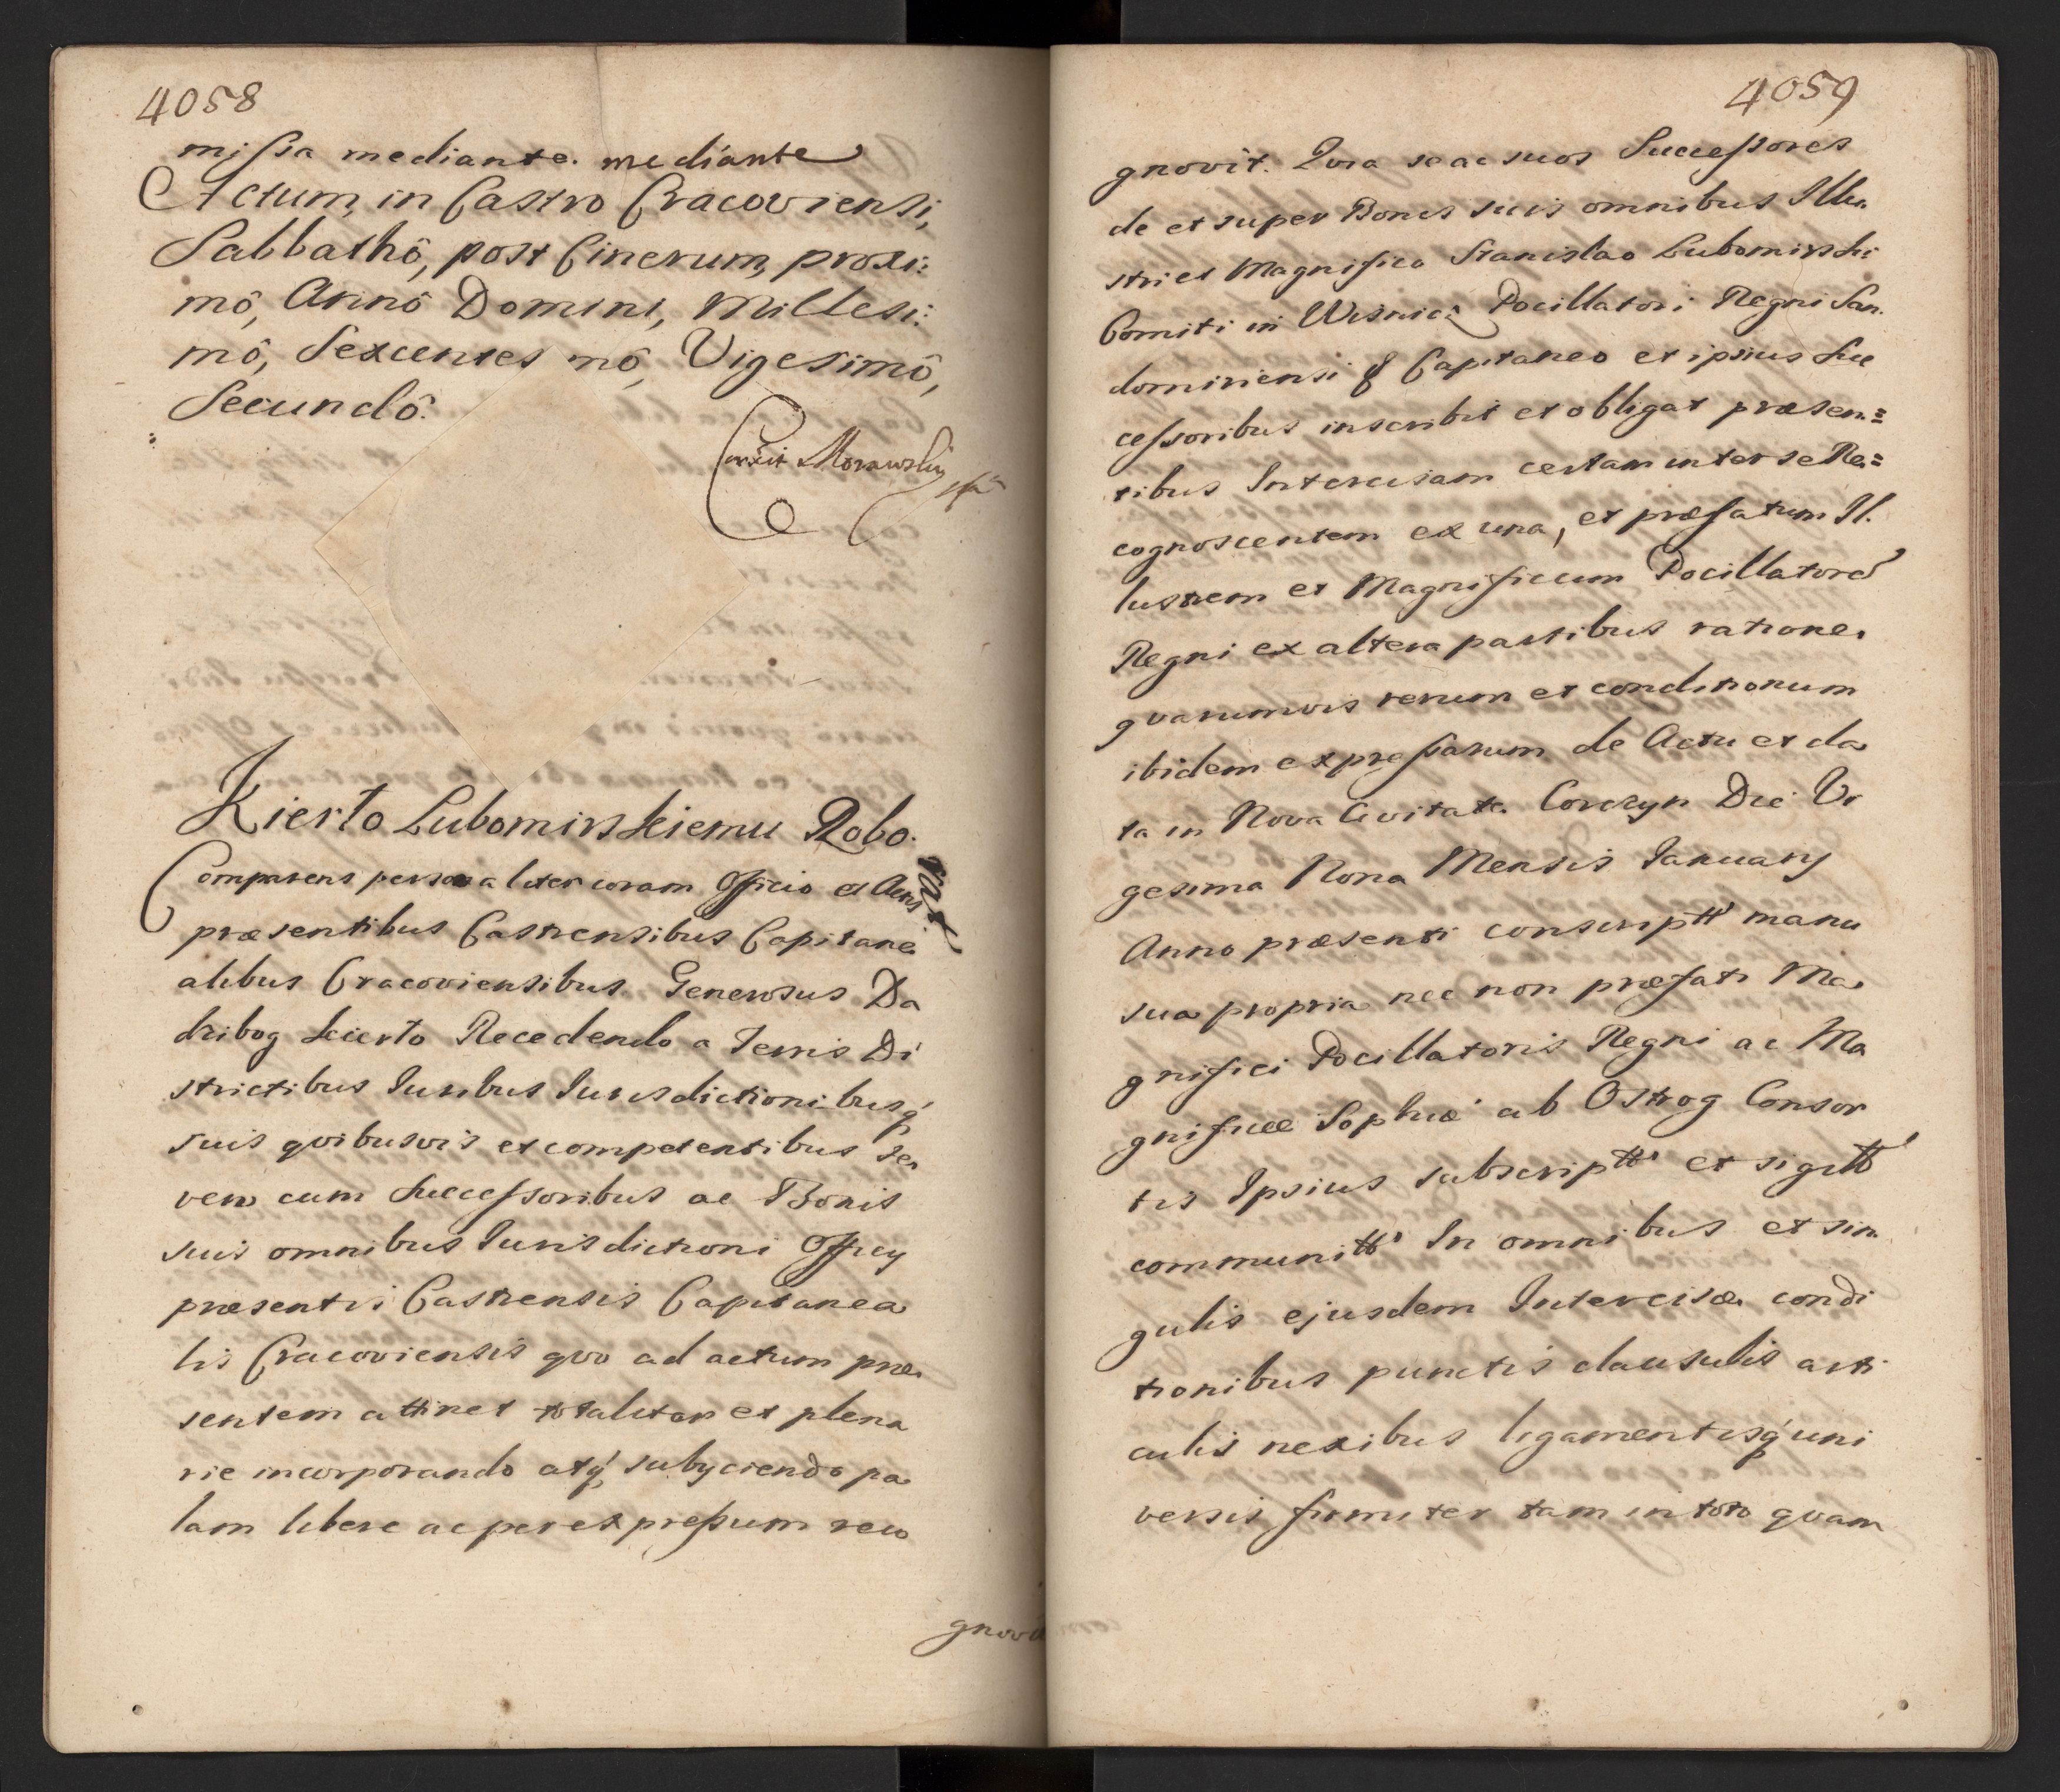 4058
missia mediante. mediante
Actum, in Castro Cracoviensi,
Sabbathô, post Cinerum, proxi:
mô, Annô Domini, Millesi:
mô, Sexcentesimô, Vigesimô,
Secundô.
Correxit Morawsky
Kierło Lubomirskiemu Robo.
rat
Comparens personaliter coram Officio et Actis
præsentibus Castrensibus Capitane
alibus Cracoviensibus Generosus Da
dzibog Kierło Recedendo a Terris Di
strictibus Iuribus Iurisdictionibusq́
suis qvibusvis et competentibus se
vero cum Successoribus ac Bonis
suis omnibus Iurisdictioni Officy
præsentis Castrensis Capitanea
lis Cracoviensis qvo ad actum præ
sentem attinet totaliter et plena
rie incorporando atq́ subyciendo pa
lam libere ac per expressum reco
gnovit
4059
gnovit. Qvia se ac suos Successores
de et super Bonis suis omnibus Illu
stri et Magnifico Stanislao Lubomirski
Comiti in Wisnicz Pocillatori Regni San
domiriensi & Capitaneo et ipsius Suc
cessoribus inscribit et obligat præsen=
tibus Intercisam certam inter se Re=
cognoscentem ex una, et præfatum Il.
lustrem et Magnificum Pocillatore
Regni ex altera partibus ratione
qvarumvis rerum et conditionum
ibidem expressarum de Actu et da
ta in Nova Civitate Corczyn Die Vi
gesima Nona Mensis January
Anno præsenti conscriptt manu
sua propria nec non præfati Ma
gnifici Pocillatoris Regni ac Ma
gnificæ Sophiæ ab Ostrog Consor
tis Ipsius subscriptt et sigitt
communitt In omnibus et sin
gulis ejusdem Intercisæ condi
tionibus punctis clausulis arti
culis nexibus ligamentisq́ uni
versis firmiter tam in toto qvam